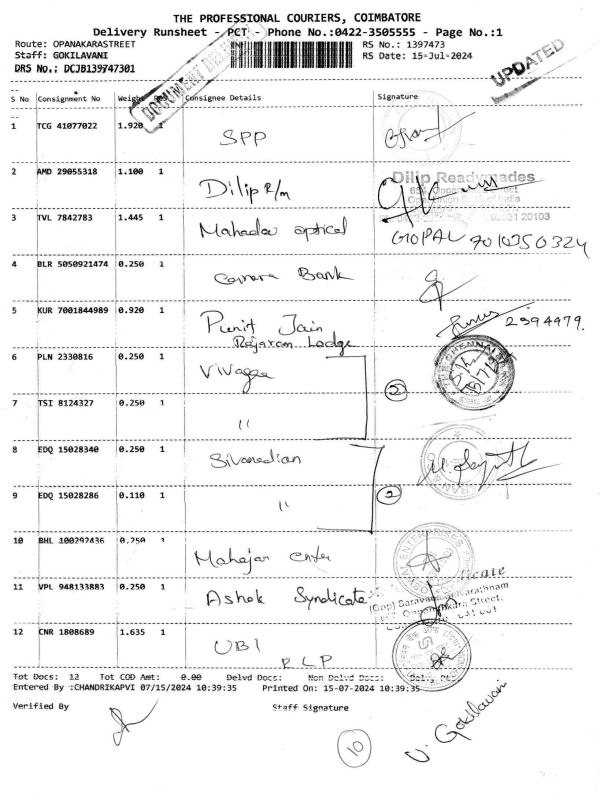 THE PROFESSIONAL COURIERS, COIMBATORE
Delivery Runsheet - PCT - Phone No.:0422-3505555 - Page No.:1
Route: OPANAKARASTREET RS No.: 1397473
Staff: GOKILAVANI RS Date: 15-Jul-2024
DRS No.: DCJB139747301
DOCUMENT DELIVERY
UPDATED
S No Consignment No Weight Consignee Details Signature
1 TCG 41077022 1.920 1 SPP
2 AMD 29055318 1.100 1 Dilip R/m
Dilip Readymades
3 TVL 7842783 1.445 1 Mahadev optical
GOPAL 7010350324
4 BLR 5050921474 0.250 1 Canara Bank
5 KUR 7001844989 0.920 1 Punit Jain 2394479.
Rajaram Lodge
6 PLN 2330816 0.250 1 Vivagaa
2
7 TSI 8124327 0.250 1 "
8 EDQ 15028340 0.250 1 Sivanedian
9 EDQ 15028286 0.110 1 " 2
10 BHL 100292436 0.250 1 Mahajan enter
11 VPL 948133883 0.250 1 Ashok Syndicate
12 CNR 1808689 1.635 1 UBI
RLP
Tot Docs: 12 Tot COD Amt: 0.00 Delvd Docs: Non Delvd Docs:
Entered By :CHANDRIKAPVI 07/15/2024 10:39:35 Printed On: 15-07-2024 10:39:35
Verified By Staff Signature
10
V. Gokilavani